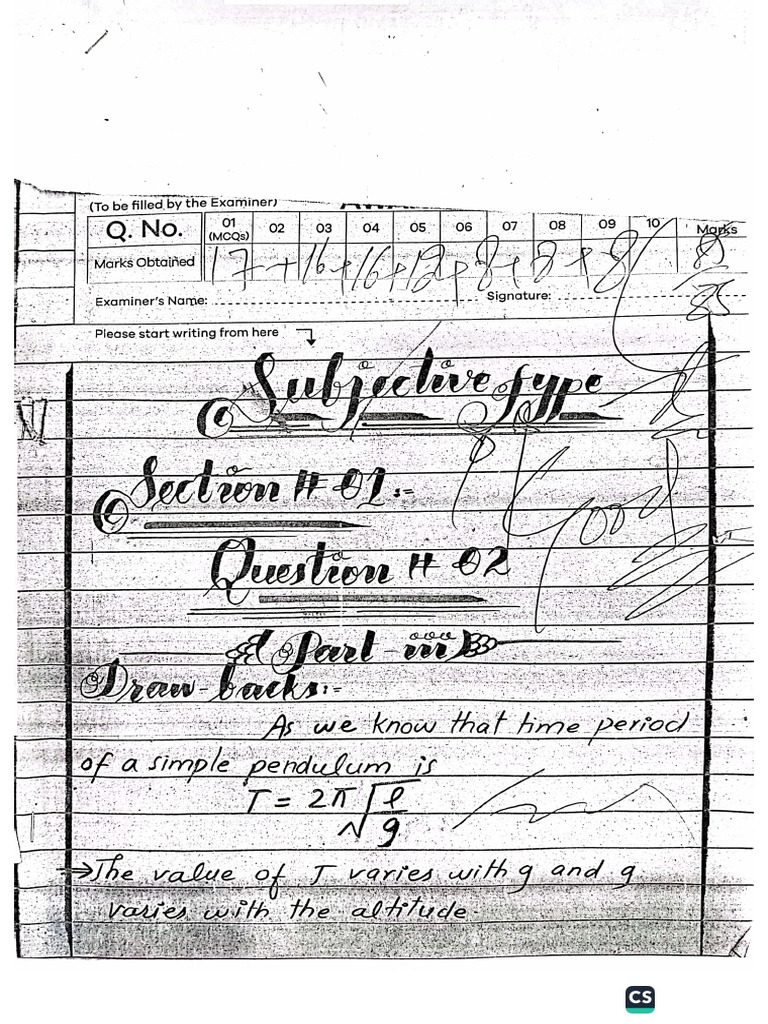 (To be filled by the Examiner)
Q. No. 01 (MCQs) 02 03 04 05 06 07 08 09 10 Marks
Marks Obtained 17 + 16 + 16 + + 8 + 8 + 8
Examiner's Name: Signature:
Please start writing from here
Subjective type
Section # 01:-
Good
Question # 02
(Part-iii)
Draw-backs:-
As we know that time period
of a simple pendulum is
T = 2π√l/g
→The value of T varies with g and g
varies with the altitude.
CS